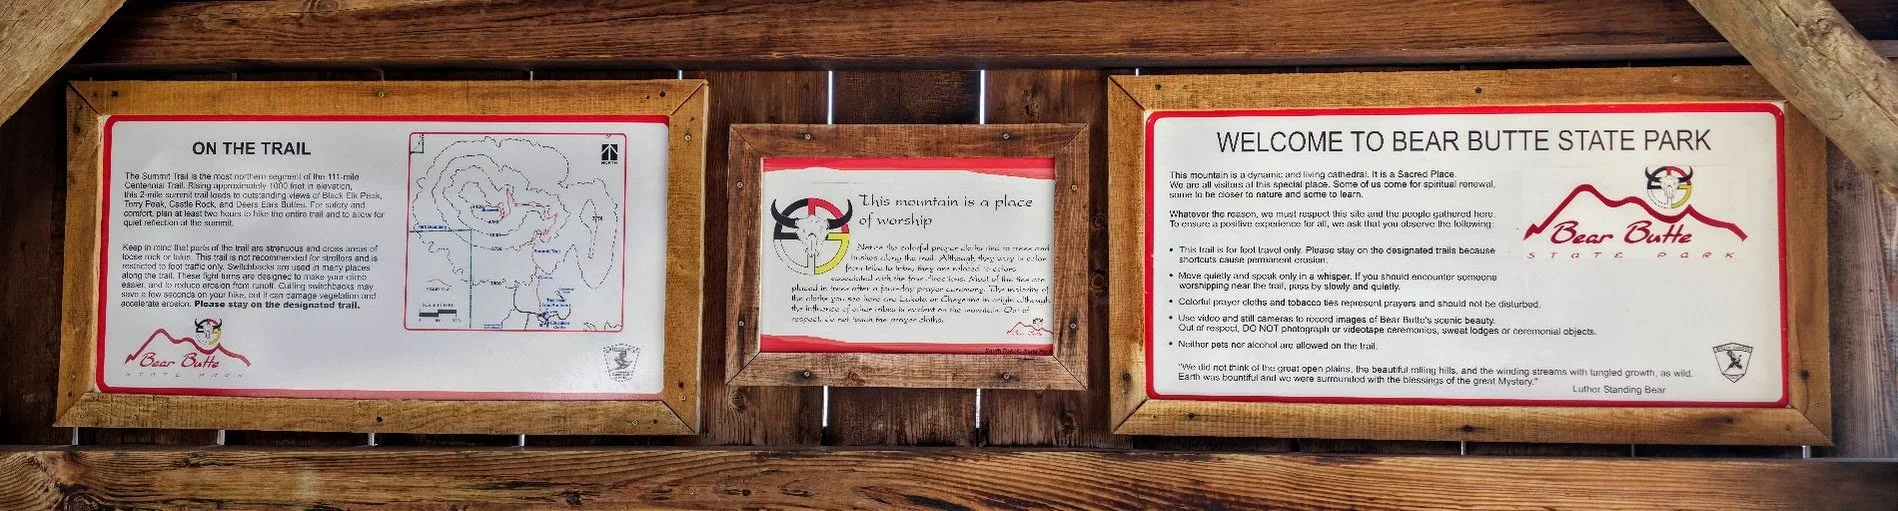 ON THE TRAIL
The Summit Trail is the most northern segment of the 111-mile
Centennial Trail. Rising approximately 1000 feet in elevation,
this 2-mile summit trail leads to outstanding views of Black Elk Peak,
Terry Peak, Castle Rock, and Deers Ears Buttes. For safety and
comfort, plan at least two hours to hike the entire trail and to allow for
quiet reflection at the summit.
Keep in mind that parts of the trail are strenuous and cross areas of
loose rock or talus. This trail is not recommended for strollers and is
restricted to foot traffic only. Switchbacks are used in many places
along the trail. These tight turns are designed to make your climb
easier, and to reduce erosion from runoff. Cutting switchbacks may
save a few seconds on your hike, but it can damage vegetation and
accelerate erosion. Please stay on the designated trail.
Bear Butte
STATE PARK
NORTH
Summit Trail
This mountain is a place
of worship
Notice the colorful prayer cloths tied to trees and
bushes along the trail. Although they vary in color
from tribe to tribe, they are related to colors
associated with the four directions. Most of the ties are
placed in trees after a four-day prayer ceremony. The majority of
the cloths you see here are Lakota or Cheyenne in origin although
the influence of other tribes is evident on the mountain. Out of
respect, do not touch the prayer cloths.
South Dakota State
WELCOME TO BEAR BUTTE STATE PARK
This mountain is a dynamic and living cathedral. It is a Sacred Place.
We are all visitors at this special place. Some of us come for spiritual renewal,
some to be closer to nature and some to learn.
Whatever the reason, we must respect this site and the people gathered here.
To ensure a positive experience for all, we ask that you observe the following:
• This trail is for foot travel only. Please stay on the designated trails because
shortcuts cause permanent erosion.
• Move quietly and speak only in a whisper. If you should encounter someone
worshipping near the trail, pass by slowly and quietly.
• Colorful prayer cloths and tobacco ties represent prayers and should not be disturbed.
• Use video and still cameras to record images of Bear Butte's scenic beauty.
Out of respect, DO NOT photograph or videotape ceremonies, sweat lodges or ceremonial objects.
• Neither pets nor alcohol are allowed on the trail.
"We did not think of the great open plains, the beautiful rolling hills, and the winding streams with tangled growth, as wild.
Earth was bountiful and we were surrounded with the blessings of the great Mystery."
Luther Standing Bear
Bear Butte
STATE PARK